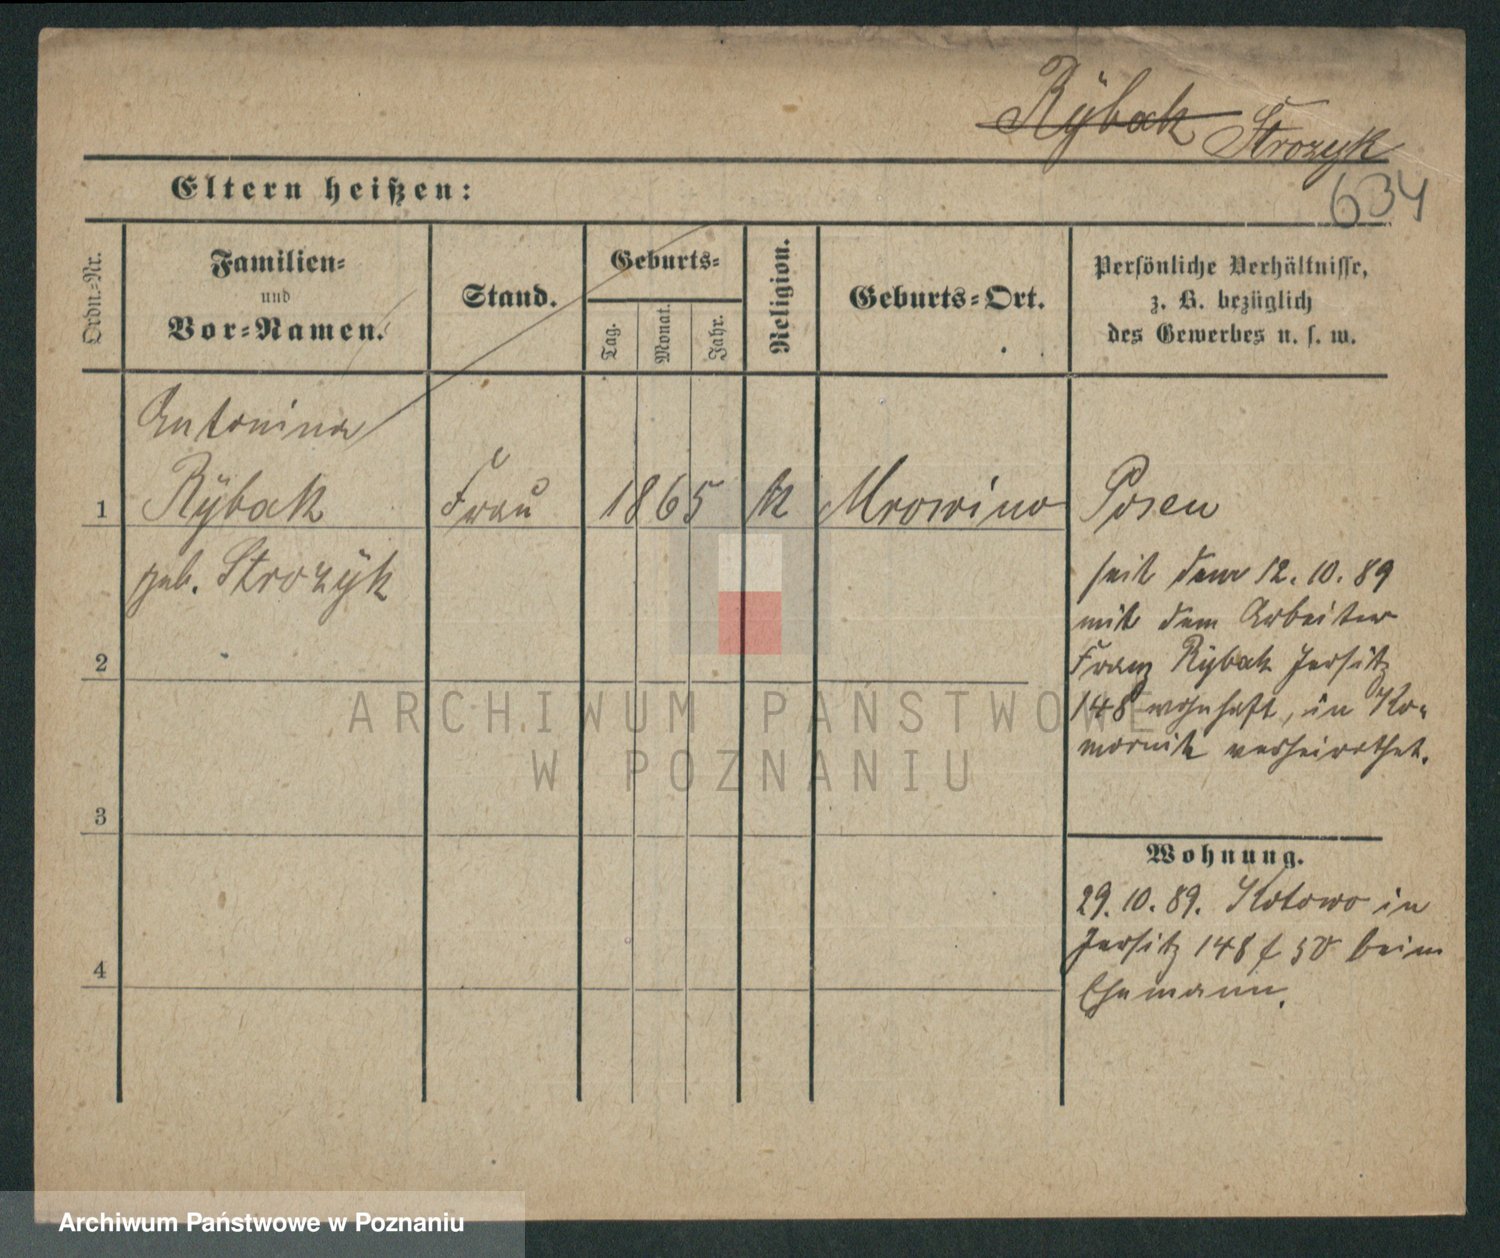 Rÿbak Strozyk
Eltern heißen:
634
Ordn.=Nr.
Familien=
und
Vor=Namen.
Stand.
Geburts=
Tag.
Monat.
Jahr.
Religion.
Geburts=Ort.
Persönliche Verhältnisse,
z. B. bezüglich
des Gewerbes u. s. w.
Antonina
1 Rÿbak Frau 1865 k Mrowino Posen
geb. Strozÿk
seit dem 12.10.89
mit dem Arbeiter
Franz Rÿbak Jersitz
148 wohnhaft, in Ko=
mornik verheirathet.
2
3
4
Wohnung.
29.10.89. Kotowo in
Jersitz 148 50 beim
Ehemann.
ARCHIWUM PAŃSTWOWE
W POZNANIU
Archiwum Państwowe w Poznaniu